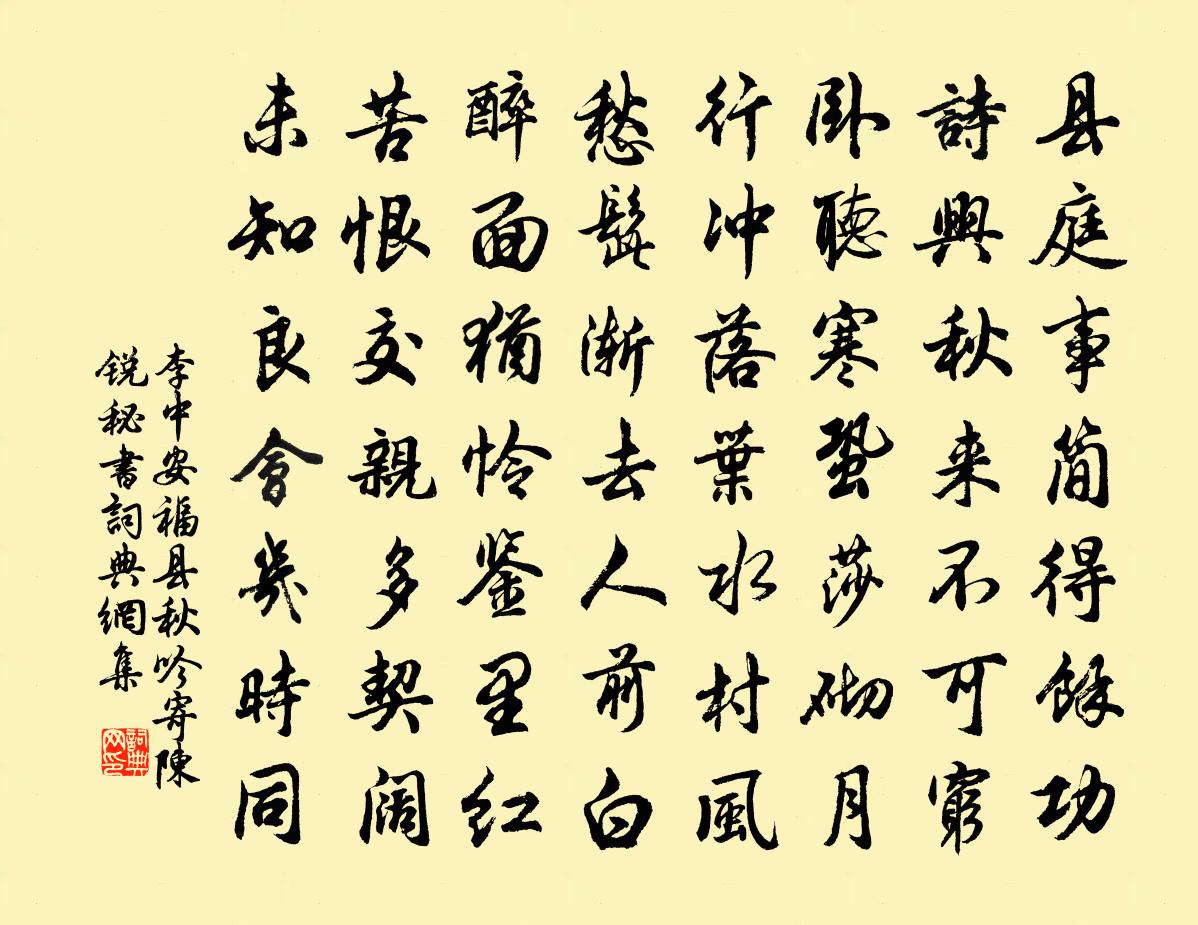 县庭事简得餘功
詩興秋来不可窮
卧聽寒蛩莎砌月
行冲落葉水村風
愁髭漸去人前白
醉面猶怜鉴里红
苦恨交親多契阔
未知良會幾時同
李中安福县秋吟寄陳
锐秘書詞典網集
詞典网印